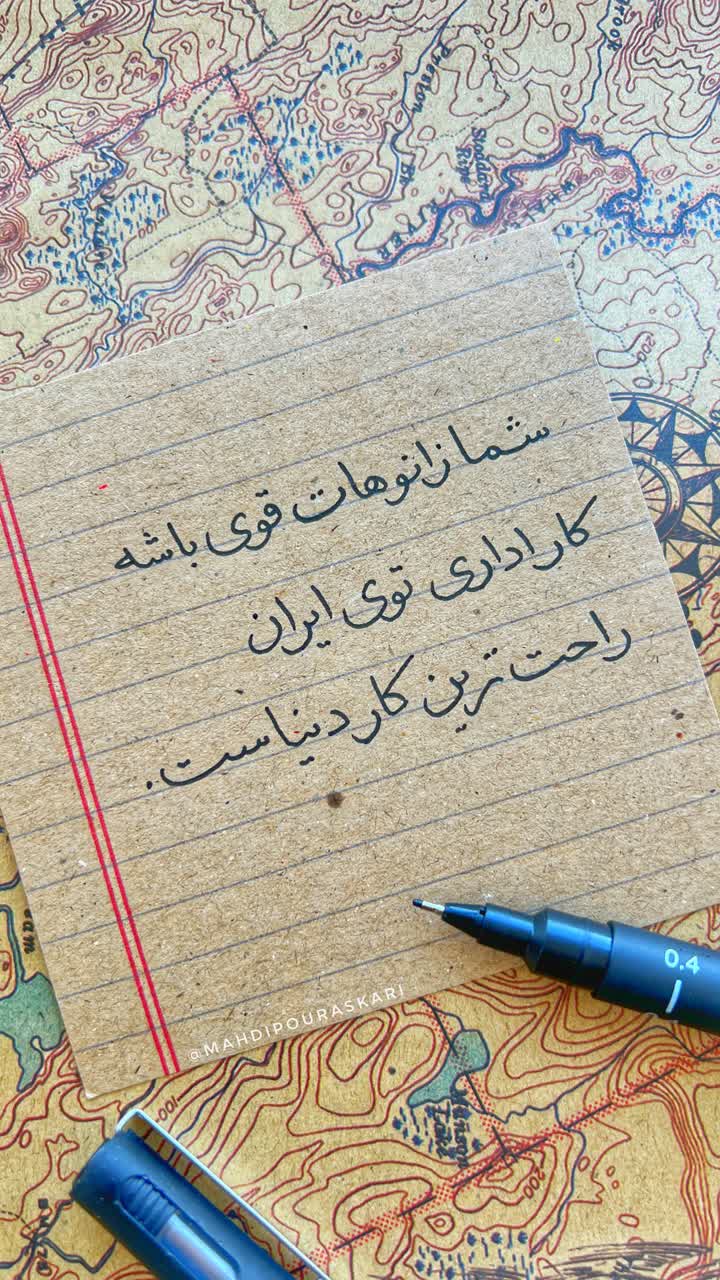 شما زانوهات قوی باشه
کار اداری توی ایران
راحت‌ترین کار دنیاست.
0.4
@MAHDIPOURASKARI